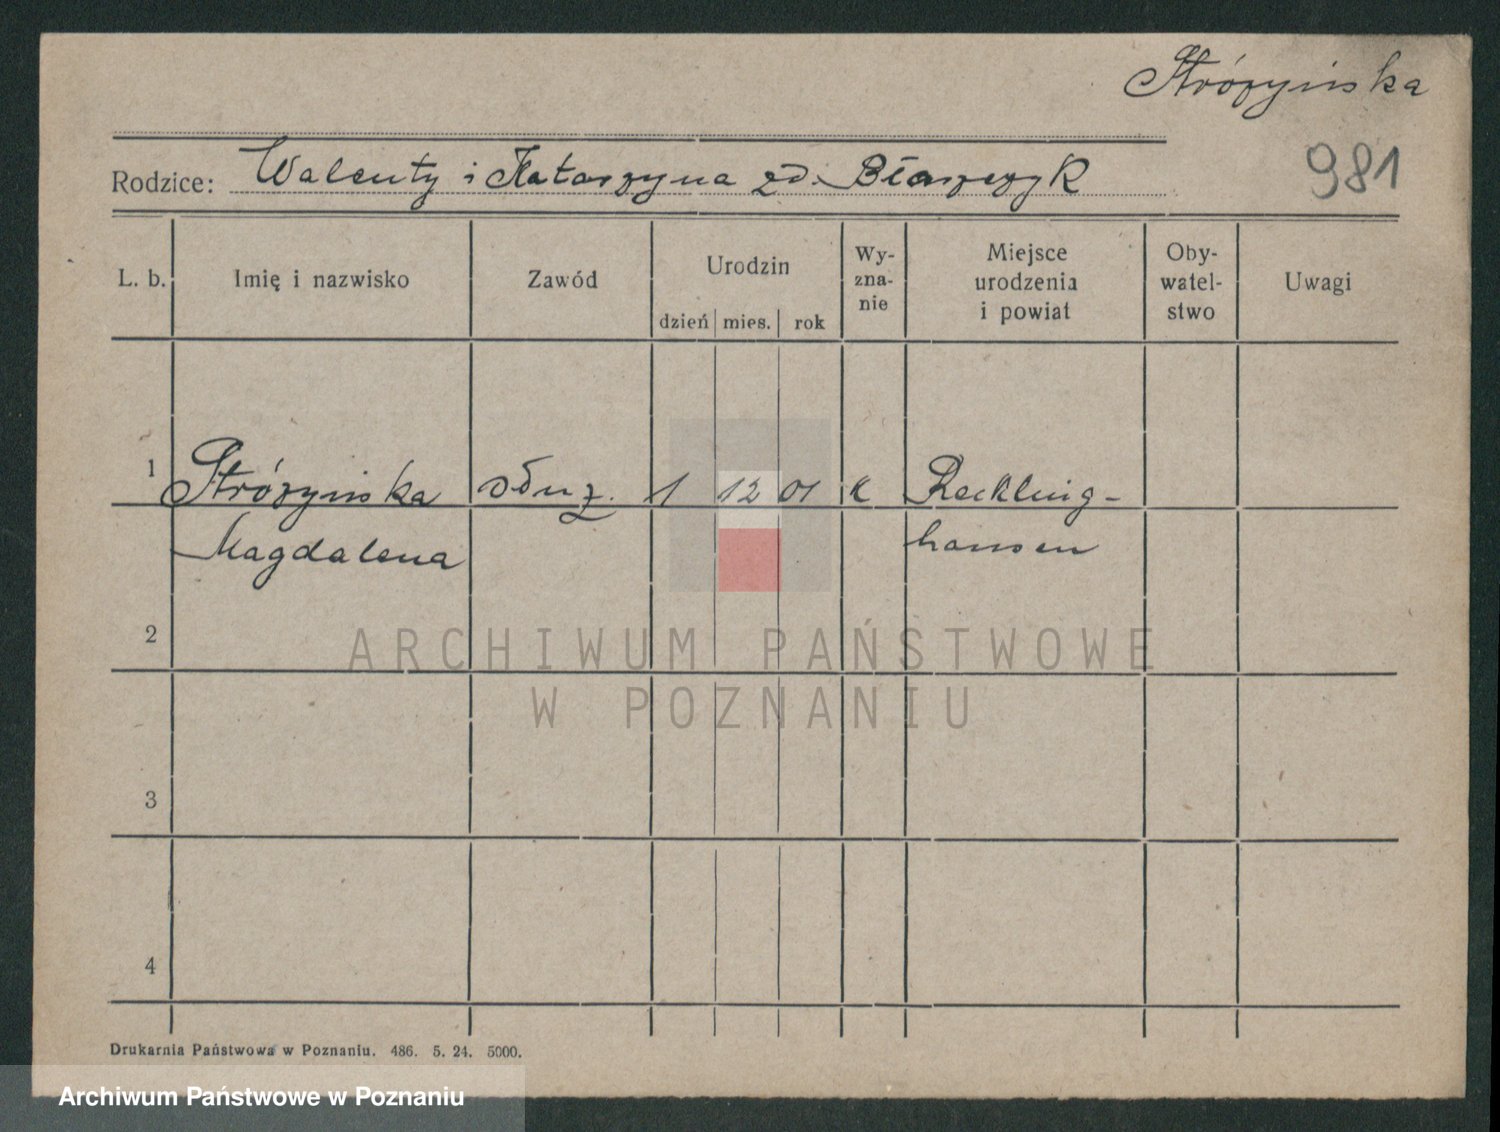 Stróżyńska
981
Rodzice: Walenty i Katarzyna zd. Błaszczyk
L. b.
Imię i nazwisko
Zawód
Urodzin
dzień
mies.
rok
Wy-
zna-
nie
Miejsce
urodzenia
i powiat
Oby-
watel-
stwo
Uwagi
1 Stróżyńska służ. 1 12 01 k Reckling-
Magdalena hausen
2
ARCHIWUM PAŃSTWOWE
W POZNANIU
3
4
Drukarnia Państwowa w Poznaniu. 486. 5. 24. 5000.
Archiwum Państwowe w Poznaniu